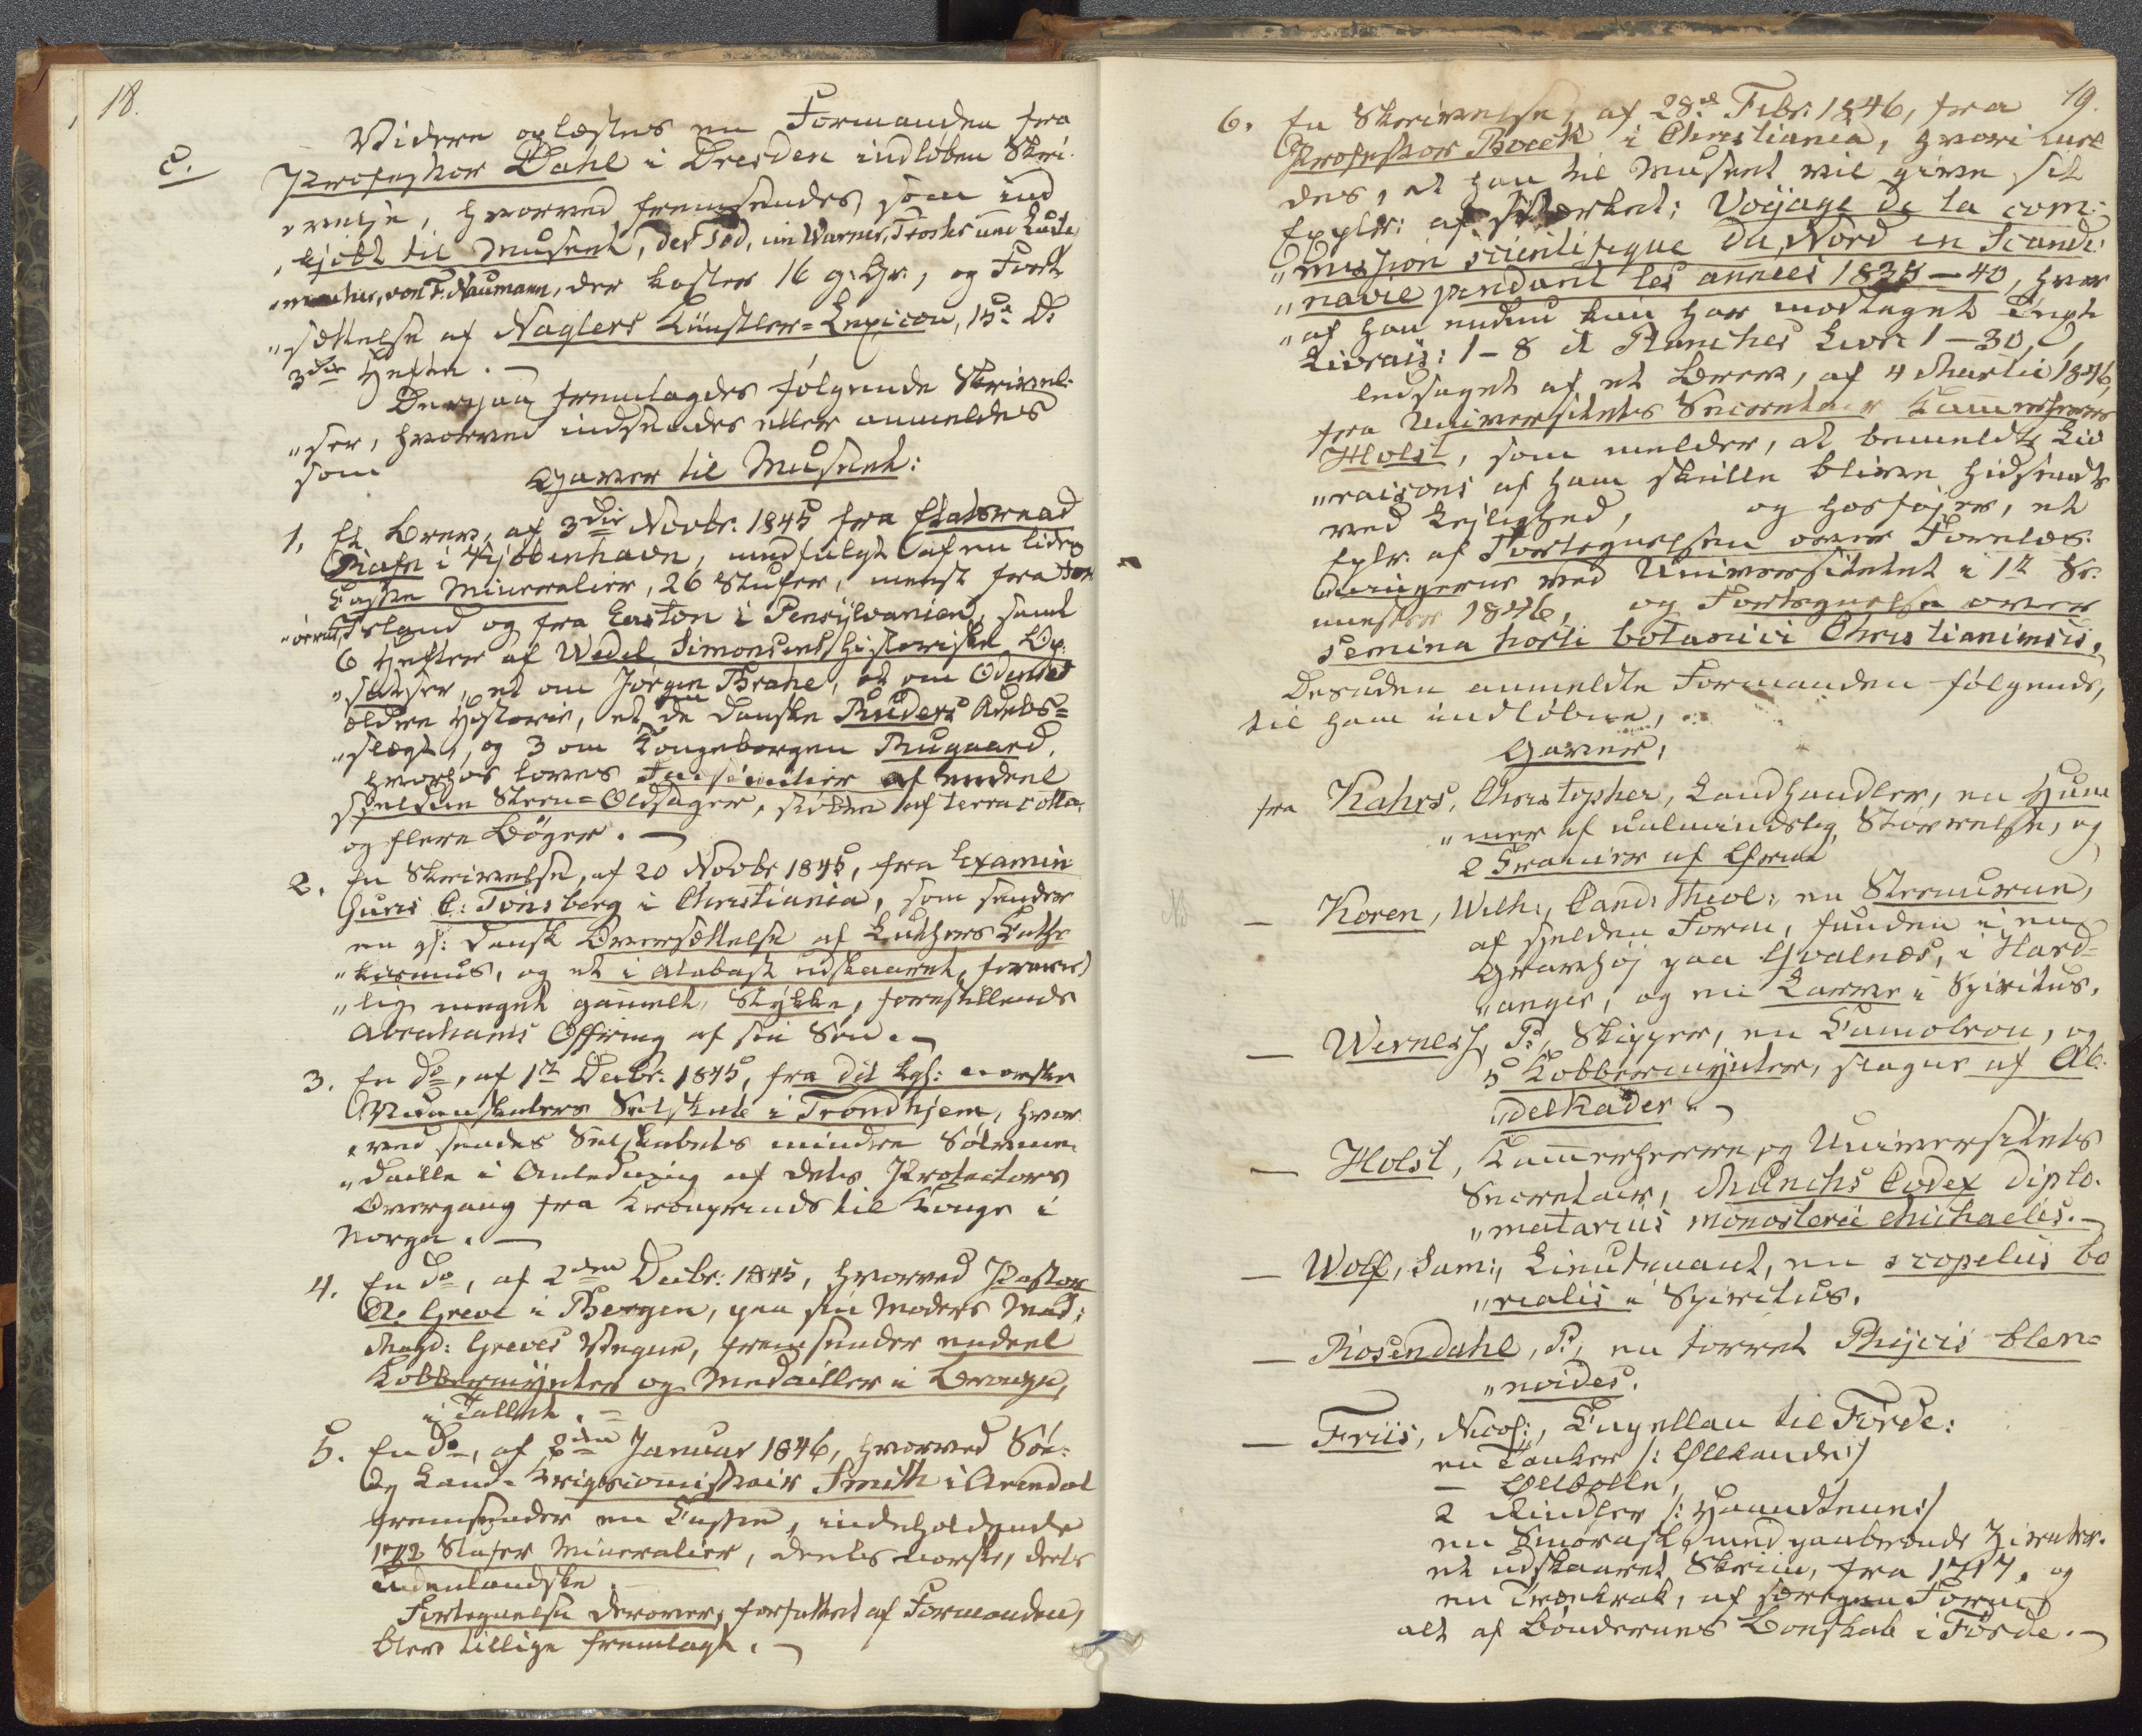 18.
Videre oplæstes en Formanden fra
c. Professor Dahl i Dresden indløben Skri-
„velse, hvorved fremsendes, som ind
„kjøbt til Museet, der Tod, ein Warner, Troster und
von F. Naumann, der koster 16 g: Gr:, og Fort
„sættelse af Naglers Künstler=Lexicon, 15de B:
3die Hefte. —
Derpaa fremlagdes følgende Skrivel-
„ser, hvorved indsendes eller anmeldes
som
Gaver til Museet:
1. Et Brev, af 3die Novbr: 1845 fra Etatsraad
Rafn i Kjöbenhavn, medfulgt af en liden
Kasse Mineralier, 26 Stufer, meest fra Fær
„öerne, Island og fra Easton i Pensylvanien, samt
6 Hefter af Wedel Simonsens historiske Op-
„satser, et om Jorgen Brahe, et om Odenses
ældre Historie, et om de danske Ruders Adels=
„slægt, og 3 om Kongeborgen Rugaard.
hvorhos loves Facsimilier af endeel
sjeldne Steen=Oldsager, støbte af terra cotta,
og flere Bøger. —
2. En Skrivelse, af 20 Novbr 1845, fra Examin
Juris C: Tönsberg i Christiania, som sender
en gl: dansk Oversættelse af Luthers Cathe
„kismus, og et i Alabast udskaaret, formod
„lig meget gammelt, Stykke, forestillende
Abrahams Offring af sin Søn. —
3. En do, af 1te Decbr: 1845, fra det kgl: norske
Videnskabers Selskab i Trondhjem, hvor
„ved sendes Selskabets mindre Sölvme-
„daille i Anledning af dets Protectors
Overgang fra Kronprinds til Konge i
Norge. —
4. En do, af 2den Decbr: 1845, hvorved Pastor
A. Greve i Bergen, paa sin Moders Mad:
Magd: Greves Vegne, fremsender endeel
Kobbermynter og Medailler i Bronze,
i Tallet. =
5. En do, af 8den Januar 1846, hvorved Söe-
og Land-Krigscommissair Smith i Arendal
fremsender en Kasse, indeholdende
172 Stufer Mineralier, deels norske, deels
udenlandske. —
Fortegnelse derover, forfattet af Formanden,
blev tillige fremlagt. —
19.
6. En Skrivelse af 28de Febr: 1846, fra
Professor Boeck i Christiania, hvori
des, at han til Museet vil give sit
Explr: af Værket: Voyage de la com-
„mission scientifique du Nord en Scandi-
„navie pendant les annees 1838—40, hvor
„af han endnu kun har modtaget Text
Livrais: 1–8 et Planches Livr: 1—30,
ledsaget af et Brev, af 4 Martii 1846,
fra Universitets Secretair Kammerherre
Holst, som melder, at bemeldte Liv
„raisons af ham skulle blive hidsendt
ved Leilighed, og hosføjer, et
Explr. af Fortegnelsen over Forelæs-
ningerne ved Universitetet i 1te Se-
mester 1846, og Fortegnelse over
semina horti botanici Christianiensis.
Desuden anmeldte Formanden følgende,
til ham indløbne,
Gaver,
fra Kahrs, Christopher, Landhandler, en Hum
„mer af ualmindelig Størrelse, og
2
— Koren, Wilh:, Cand: Theol:, en Steenurne,
af sjelden Form, funden i en
Gravhøj paa Hvalnæs, i Hard-
„anger, og en Larve i Spiritus.
— Wernes, P:, Skipper, en Camoleon, og
5 Kobbermynter, slagne af Ab-
delkader. —
— Holst, Kammerherre og Universitets
Secretair, Munchs Codex diplo-
„matarius monasterii Michaelis. —
— Wolf, Sam:, Lieutenant, en scopelus bo
„realis i Spiritus.
— Rosendahl, P:, en torret Phycis blen=
„noides.
— Friis, Nicol:, Capellan til Förde:
en Kanker /: Ølkande :/
— Ølbolle,
2 /: Haandtene :/
en Smörask, med paabrændte Zirater.
et udskaaret Skriin, fra 1717, og
en Trækrak, af særegen Form,
alt af Bøndernes Boeskab i Förde. —